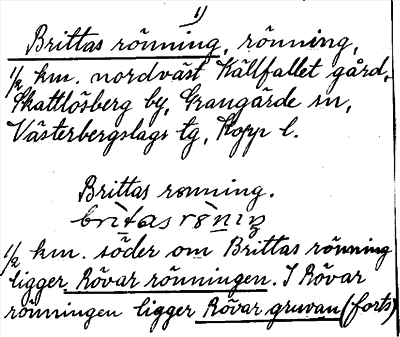 1)
Brittas rönning, rönning,
1/2 km. nordväst Källfallet gård,
Skattlösberg by, Grangärde sn,
Västerbergslags tg, Kopp l.
Brittas rönning.
britas röniŋ
1/2 km. söder om Brittas rönning
ligger Rövar rönningen. I Rövar
rönningen ligger Rövar gruvan (forts)